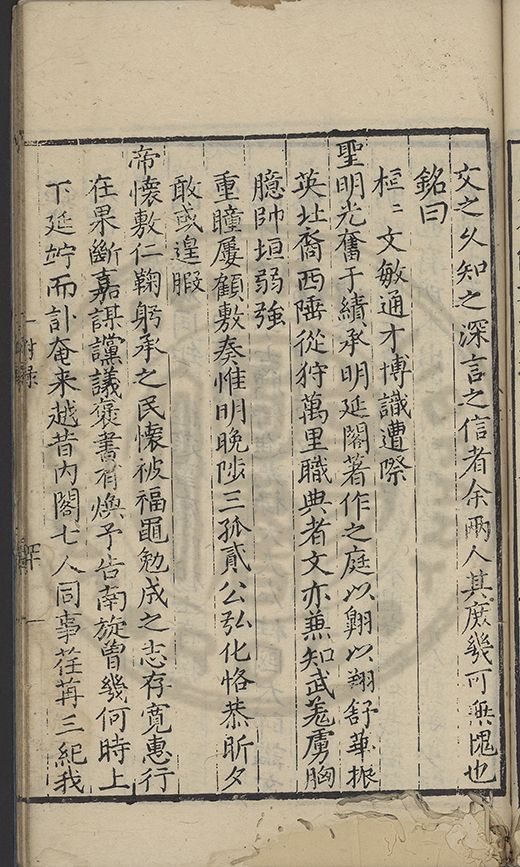 文之久知之深言之信者余兩人其庶幾可無愧也
銘曰
桓〻文敏通才博識遭際
聖明光奮于績承明延閣著作之庭以翺以翔舒華振
英北裔西陲從狩萬里職典者文亦兼知武羗虜胸
臆帥垣弱強
重瞳屢顧敷奏惟明晚陟三孤貳公弘化恪恭昕夕
敢或遑暇
帝懷敷仁鞠躬承之民懷被福黽勉成之志存寬惠行
在果斷嘉謀讜議褒書有煥予告南旋曽幾何時上
下延竚而訃奄来越昔內閣七人同事荏苒三紀我
附录